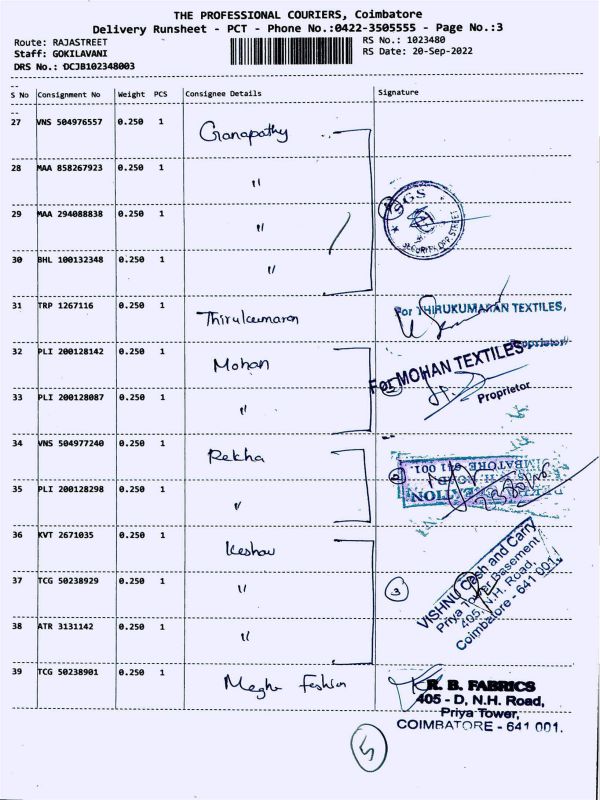 THE PROFESSIONAL COURIERS, Coimbatore
Delivery Runsheet - PCT - Phone No.:0422-3505555 - Page No.:3
Route: RAJASTREET
Staff: GOKILAVANI
DRS No.: DCJB102348003
RS No.: 1023480
RS Date: 20-Sep-2022
S No Consignment No Weight PCS Consignee Details Signature
27 VNS 504976557 0.250 1 Ganapathy
28 MAA 858267923 0.250 1 "
29 MAA 294088838 0.250 1 "
SGS
SECURITY OPP. STREET
30 BHL 100132348 0.250 1 "
31 TRP 1267116 0.250 1 Thirukumaran
For THIRUKUMARAN TEXTILES,
Proprietor
32 PLI 200128142 0.250 1 Mohan
For MOHAN TEXTILES
Proprietor
33 PLI 200128087 0.250 1 "
34 VNS 504977240 0.250 1 Rekha
COIMBATORE - 641 001.
N.H. ROAD
35 PLI 200128298 0.250 1 "
36 KVT 2671035 0.250 1 Keshav
VISHNU Cash and Carry
Priya Tower Basement
405, N.H. Road,
Coimbatore - 641 001.
37 TCG 50238929 0.250 1 "
3
38 ATR 3131142 0.250 1 "
39 TCG 50238901 0.250 1 Megha Fashion
R. B. FABRICS
405 - D, N.H. Road,
Priya Tower,
COIMBATORE - 641 001.
5